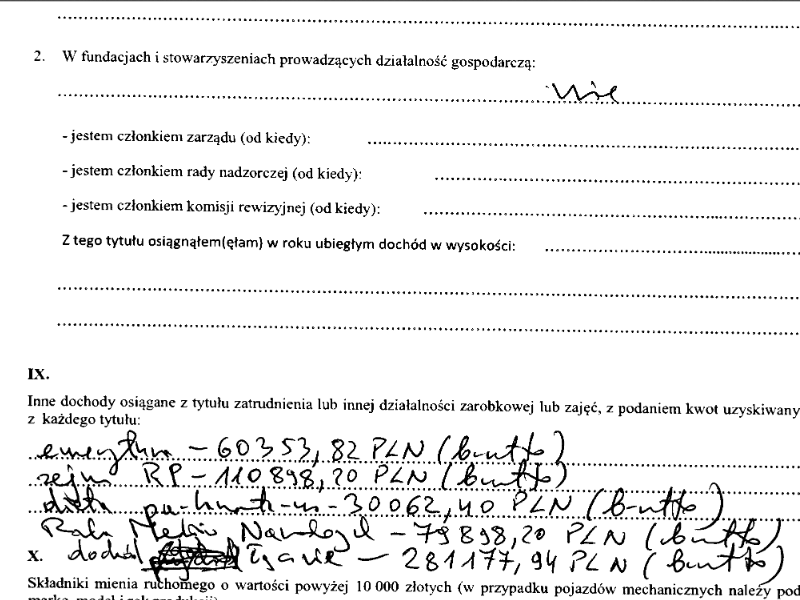 2. W fundacjach i stowarzyszeniach prowadzących działalność gospodarczą:
Nie
- jestem członkiem zarządu (od kiedy):
- jestem członkiem rady nadzorczej (od kiedy):
- jestem członkiem komisji rewizyjnej (od kiedy):
Z tego tytułu osiągnąłem(ęłam) w roku ubiegłym dochód w wysokości:
IX.
Inne dochody osiągane z tytułu zatrudnienia lub innej działalności zarobkowej lub zajęć, z podaniem kwot uzyskiwany
z każdego tytułu:
emerytura - 60353,82 PLN (brutto)
sejm RP - 110898,20 PLN (brutto)
dieta - 30062,40 PLN (brutto)
Rada - 79898,20 PLN (brutto)
X. dochód łącznie - 281177,94 PLN (brutto)
Składniki mienia ruchomego o wartości powyżej 10 000 złotych (w przypadku pojazdów mechanicznych należy pod